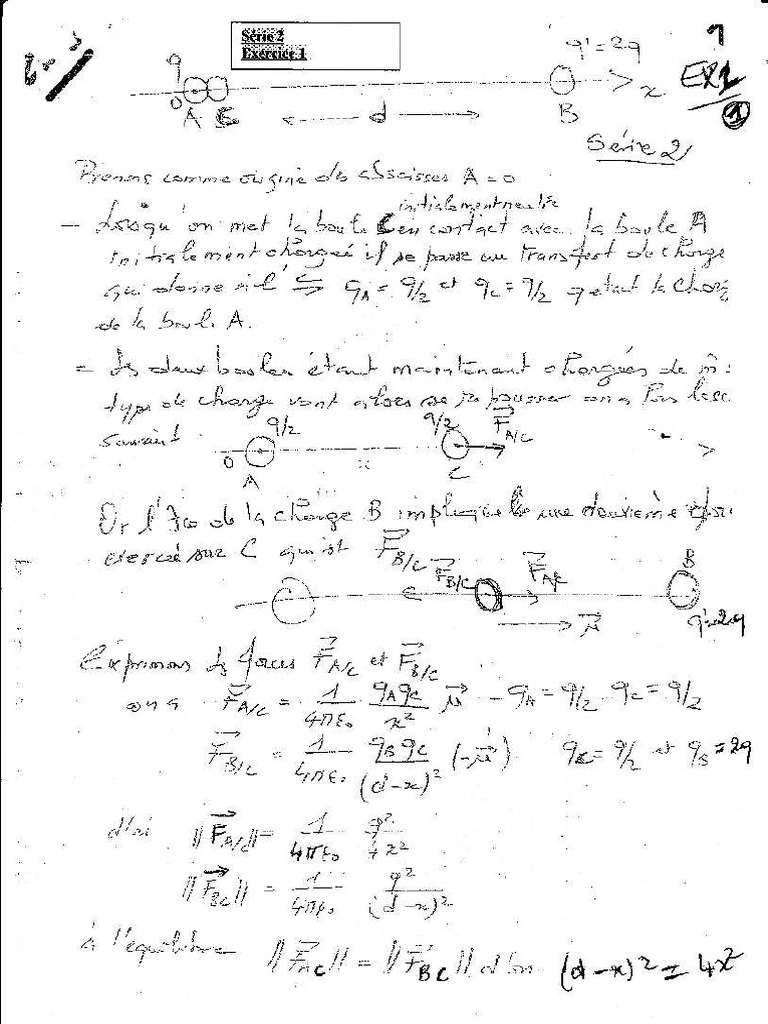 Série 2
Exercice 1
q
q' = 2q
EX1
1
0
A
C
d
B
x
Série 2
Prenons comme origine des abscisses A = 0
initialement neutre
- Lorsqu'on met la boule C en contact avec la boule A
initialement chargée il se passe un transfert de charge
qui donne à l' qA = q/2 et qC = q/2 q étant la charg
de la boule A.
= Les deux boules étant maintenant chargées de m̂ :
type de charge vont alors se repousser on a
suivant
q/2
q/2
F A/C
0
A
x
C
Or de la charge B implique une deuxième
exercée sur C qui est F B/C
F B/C
F A/C
B
μ
q' = 2q
Exprimons les forces F A/C et F B/C
on a F A/C = 1/4πε0 qA qC/x² μ - qA = q/2 qC = q/2
F B/C = 1/4πε0 qB qC/(d-x)² (-μ) qC = q/2 et qB = 2q
d'où ||F A/C|| = 1/4πε0 q²/4x²
||F BC|| = 1/4πε0 q²/(d-x)²
à l'équilibre ||F AC|| = ||F BC|| d'où (d-x)² = 4x²